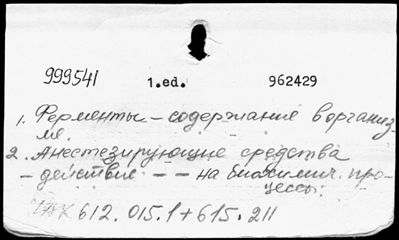 999541 1.ed. 962429
1. Ферменты – содержание в организ-
ме.
2. Анестезирующие средства
– действие – – на биохимич. про-
цессы.
УДК 612.015.1+615.211